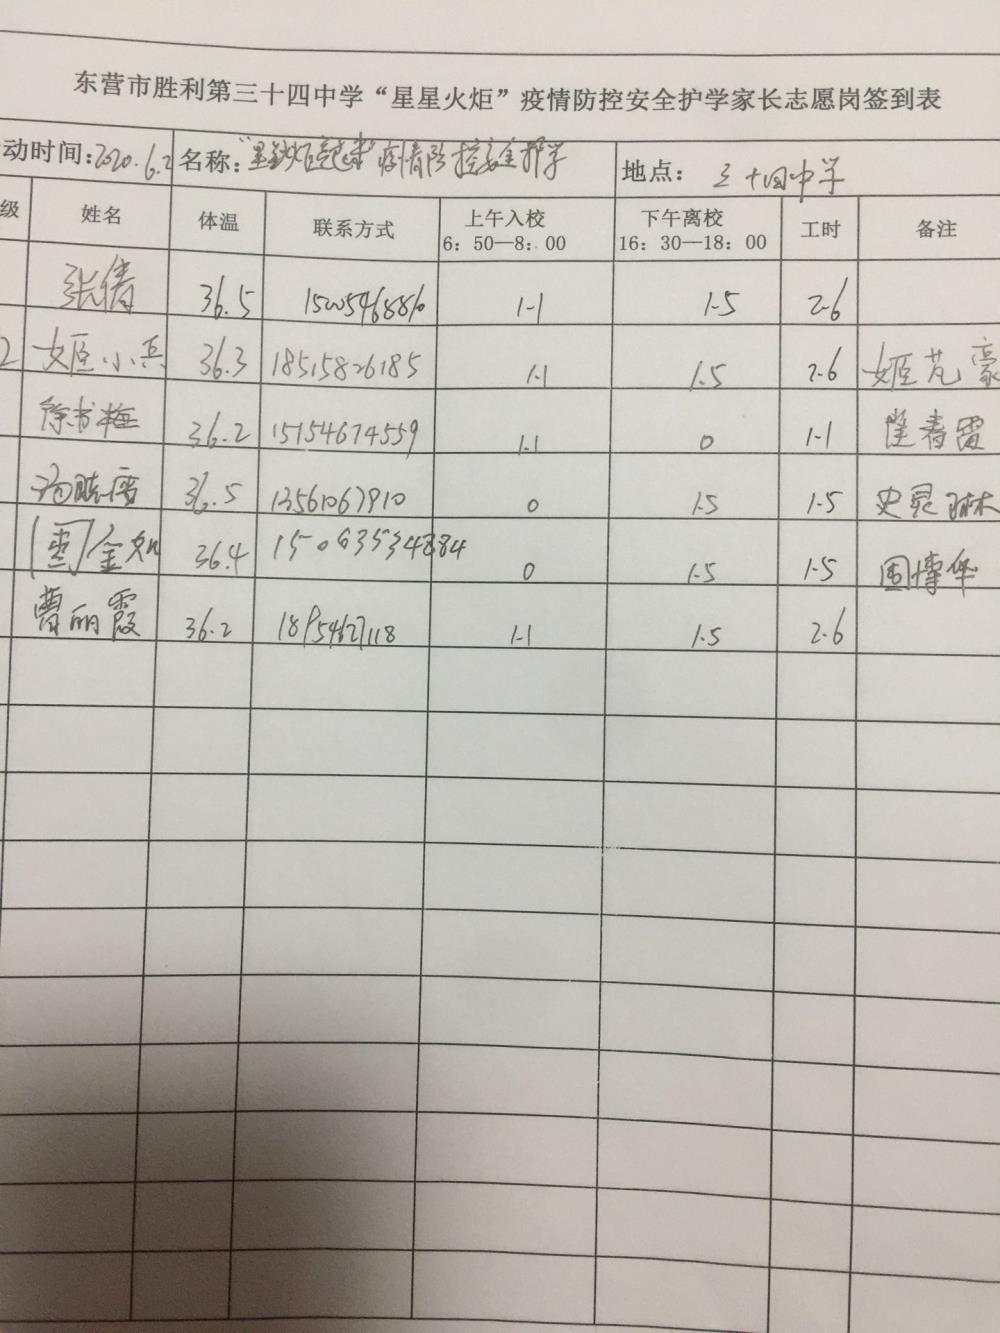 东营市胜利第三十四中学“星星火炬”疫情防控安全护学家长志愿岗签到表
动时间:2020.6.2 名称: 疫情防控安全护学 地点: 三十四中学
级 姓名 体温 联系方式 上午入校 6：50—8：00 下午离校 16：30—18：00 工时 备注
张倩 36.5 1-1 1-5 2-6
2 姬小兵 36.3 18515826185 1-1 1.5 2-6 姬芃豪
徐书梅 36.2 15154674559 1-1 0 1-1 春雷
36.5 13561067910 0 1.5 1-5 史灵琳
金如 36.4 15063534884 0 1-5 1-5 周博华
曹丽霞 36.2 18954627118 1-1 1.5 2-6